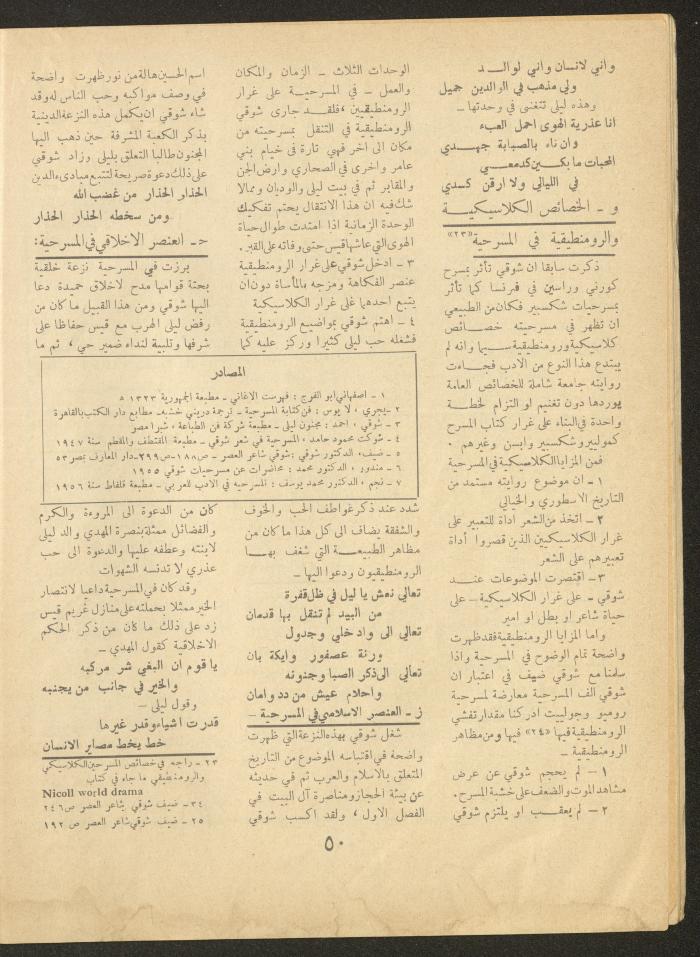 وانبي لانسان وانبي لوالـــد
ولي مذهب في الوالدين جميل
وهذه ليلى تتغنى في وحدتها ـ
انا عذرية الهوى احمل العبء
وان ناء بالصبابة جهـــدي
المحبات ما بكــين كدمعــي
في الليالي ولا ارقن كسدي
و ـ الخصائص الكلاسيكيـــة
والرومنطيقية في المسرحية «٢٣»
ذكرت سابقا ان شوقي تأثر بمسرح
كورني وراسين في فرنسا كما تأثر
بمسرحيات شكسبير فكان من الطبيعي
ان تظهر في مسرحيته خصــائص
كلاسيكية ورومنطيقية سيــما وانه لم
يبتدع هذا النوع من الادب فجــاءت
روايته جامعة شاملة للخصائص العامة
يوردها دون تغنيم او التزام لخطــة
واحدة في البناء على غرار كتاب المسرح
كموليير وشكسبير وابسن وغيرهم .
فمن المزايا الكلاسيكية في المسرحية
١ ـ ان موضوع روايته مستمد من
التاريخ الاسطوري والخيالي
٢ ـ اتخذ من الشعر اداة للتعبير على
غرار الكلاسيكيين الذين قصروا أداة
تعبيرهم على الشعر
٣ ـ اقتصرت الموضوعات عنـــد
شوقي ـ على غرار الكلاسيكية ـ على
حياة شاعر او بطل او امير
واما المزايا الرومنطيقية فقد ظهرت
واضحة تمام الوضوح في المسرحية واذا
سلمنا مع شوقي ضيف في اعتبار ان
شوقي الف المسرحية معارضة لمسرحية
روميو وجولييت ادركنا مقدار تفشي
الرومنطيقية فيها «٢٤» فيها ومن مظاهر
الرومنطيقية ـ
١ ـ لم يحجم شوقي عن عرض
مشاهد الموت والضعف على خشبة المسرح .
٢ ـ لم يعقــب او يلتزم شوقي
الوحدات الثلاث ـ الزمان والمكان
والعمل ـ في المسرحيــة على غرار
الرومنطيقيين ، فلقــد جارى شوقي
الرومنطيقية في التنقل بمسرحيته من
مكان الى اخر فهي تارة في خيام بني
عامر واخرى في الصحاري وارض الجن
والمقابر ثم في بيت ليلى والوديان ومما لا
شك فيه ان هذا الانتقال يحتم تفكيك
الوحدة الزمانية اذا امتدت طوال حياة
الهوى التي عاشها قيس حتى وفاته على القبر .
٣ ـ ادخل شوقي على غرار الرومنطيقية
عنصر الفكاهة ومزجه بالمأساة دون ان
يتبع احدهما على غرار الكلاسيكية
٤ ـ اهتم شوقي بمواضيع الرومنطيقية
فشغله حب ليلى كثيرا وركز عليه كما
اسم الحسين هالة من نور ظهرت واضحة
في وصف مواكبه وحب الناس له وقد
شاء شوقي ان يكمل هذه النزعة الدينية
بذكر الكعبة المشرفة حين ذهب اليها
المجنون طالبا التعلق بليلى وزاد شوقي
على ذلك دعوة صريحة لتتبع مبادىء الدين
الحذار الحذار من غضب الله
ومن سخطه الحذار الحذار
حـ ـ العنصر الاخلاقي في المسرحية :
برزت في المسرحية نزعة خلقية
بحتة قوامها مدح لاخلاق حميدة دعا
اليها شوقي ومن هذا القبيل ما كان من
رفض ليلى الهرب مع قيس حفاظا على
شرفها وتلبية لنداء ضمير حي ، ثم ما
المصادر
١ ـ اصفهاني ابو الفرج : فهرست الاغاني ـ مطبعة الجمهورية ١٣٢٣ ه
٢ ـ يجري ، لا يوس : فن كتابة المسرحية ـ ترجمة دريني خشبه ـ مطابع دار الكتب بالقاهرة
٣ ـ شوقي ، احمد : مجنون ليلى ـ مطبعة شركة فن الطباعة ، شبرا مصر
٤ ـ شوكت محمود حامد ، المسرحية في شعر شوقي ـ مطبعة المقتطف والمقطم سنة ١٩٤٧
٥ ـ ضيف ، الدكتور شوقي : شوقي شاعر العصر ـ ص ١٨٨ ـ ص ٢٩٩ ـ دار المعارف بمصر ٥٣
٦ ـ مندور ، الدكتور محمد : محاضرات عن مسرحيات شوقي ١٩٥٥
٧ ـ نجم ، الدكتور محمد يوسف : المسرحيه في الادب للعربي ـ مطبعة قلفاط سنة ١٩٥٦
شدد عند ذكر عواطف الحب والخوف
والشفقة يضاف الى كل هذا ما كان من
مظاهر الطبيعـــة التي شغف بهــا
الرومنطيقيون ودعوا اليها ـ
تعالي نعش يا ليل في ظل قفرة
من البيد لم تنقل بها قدمان
تعالى الى واد خلي وجدول
ورنة عصفور وايكة بان
تعالي الى ذكر الصبا وجنونه
واحلام عيش من دد وامان
ز ـ العنصر الاسلامي في المسرحية ـ
شغل شوقي بهذه النزعة التي ظهرت
واضحة في اقتباسه الموضوع من التاريخ
المتعلق بالاسلام والعرب ثم في حديثه
عن بيئة الحجاز ومناصرة آل البيت في
الفصل الاول ، ولقد اكسب شوقي
كان من الدعوة الى المروءة والكرم
والفضائل ممثلة بنصرة المهدي والد ليلى
لابنته وعطفه عليها والدعوة الى حب
عذري لا تدنسه الشهوات
وقد كان في المسرحية داعيا لانتصار
الخير ممثلا بحملته على منازل غريم قيس
زد على ذلك ما كان من ذكر الحكم
الاخلاقية كقول المهدي ـ
يا قوم ان البغي شر مركبه
والخير في جانب من يجنبه
وقول ليلى ـ
قدرت اشياء وقدر غيرها
خط يخط مصاير الانسان
٢٣ ـ راجه في خصائص المسرحين الكلاسيكي
والرومنطيقي ما جاء في كتاب
Nicoll world drama
٣٤ ـ ضيف شوقي شاعر العصر ص ٢٤٦
٢٥ ـ ضيف شوقي شاعر العصر ص ١٩٢
٥٠